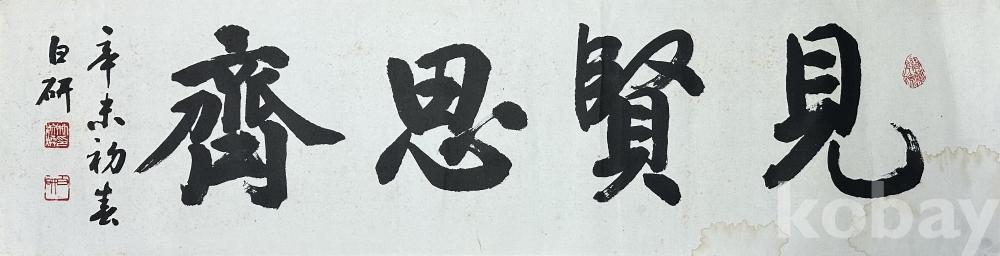 見賢思齊
辛未初春
白研
kobay